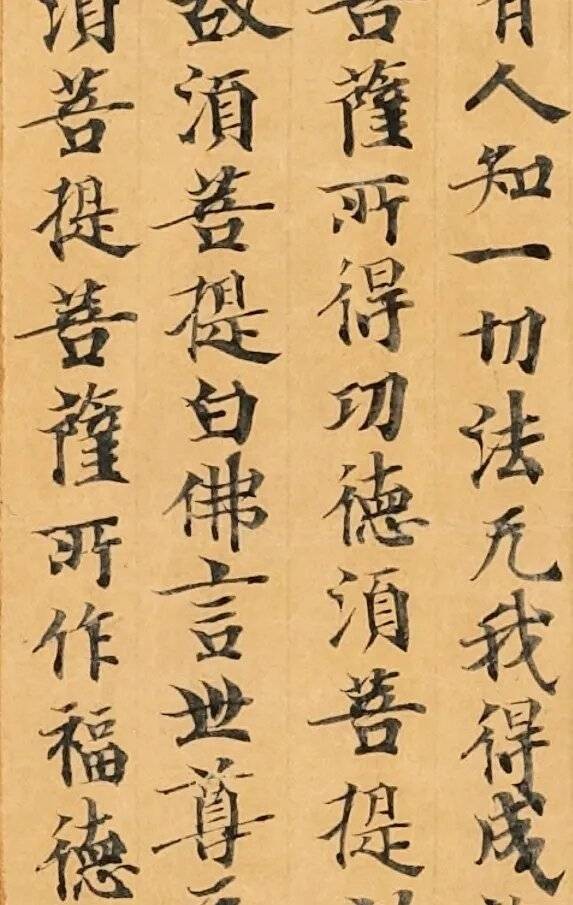 有人知一切法无我得成
菩薩所得功德須菩提
故須菩提白佛言世尊
須菩提菩薩所作福德